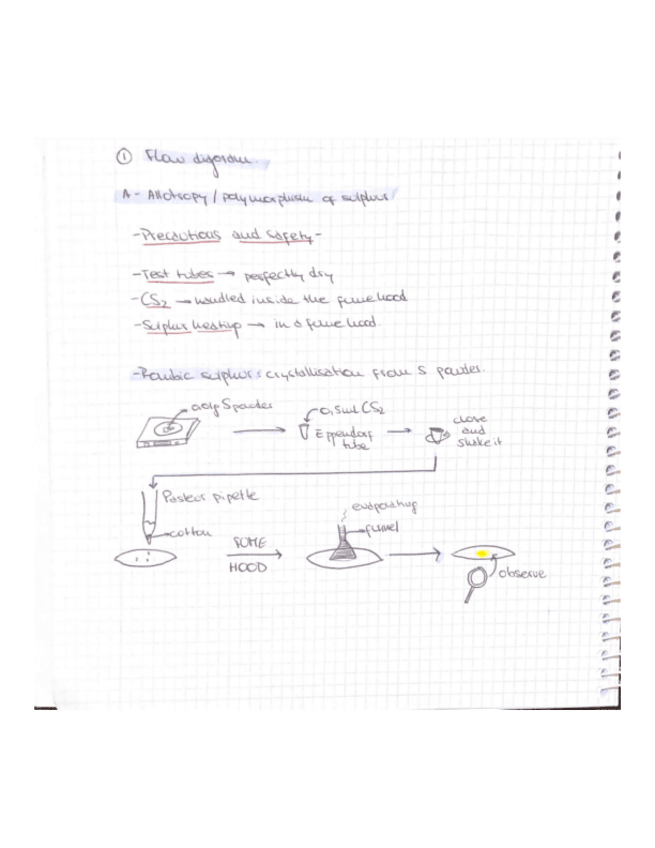 ① Flow diagram.
A- Allotropy / polymorphism of sulphur
- Precautions and safety -
- Test tubes → perfectly dry
- CS₂ → handled inside the fume hood
- Sulphur heating → in a fume hood.
- Rombic sulphur: crystallisation from S powder.
S powder
0,5mL CS₂
Eppendorf
tube
close
and
shake it
Pasteur pipette
cotton
FUME
HOOD
evaporating
funnel
observe